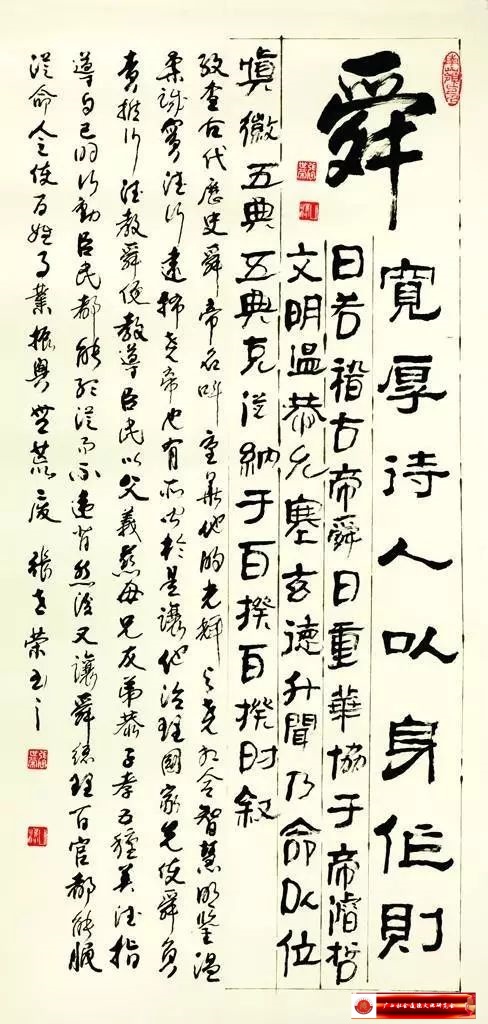 舜
寬厚待人以身作則
曰若稽古帝舜曰重華協于帝濬哲
文明温恭允塞玄德升聞乃命以位
慎徽五典五典克從納于百揆百揆时叙
考查古代歷史舜帝名叫重華他的光輝與堯相合智慧明鑒温
柔誠實德行遠揚堯帝也有所聞於是讓他治理國家先使舜負
責推行德教舜便教導臣民以父義慈母兄友弟恭子孝五種美德指
導自己的行動臣民都能聽從而不違背然後又讓舜總理百官都能服
從命令使百姓事業振興無荒廢 張志榮書